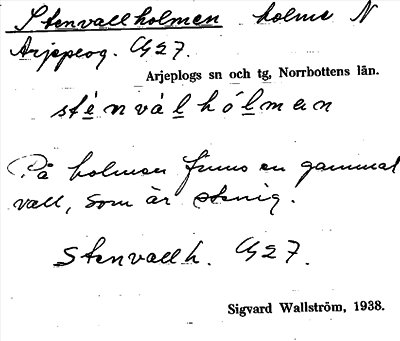 Stenvallholmen holme N
Arjeplog. G27.
Arjeplogs sn och tg, Norrbottens län.
sténvàlhólmen
På holmen finns en gammal
vall, som är stenig.
Stenvallh. G27.
Sigvard Wallström, 1938.